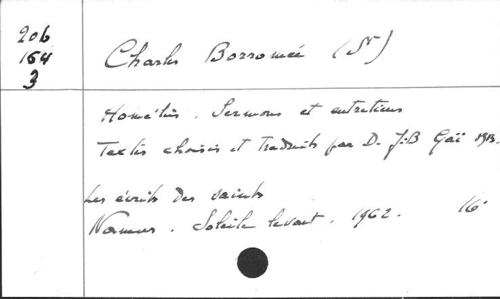 206
164
3
Charles Borromée (St)
Homélies. Sermons et entretiens
Textes choisis et traduits par D. J:B Gaï
Les écrits des saints
Namur. Soleil levant. 1962. 16°